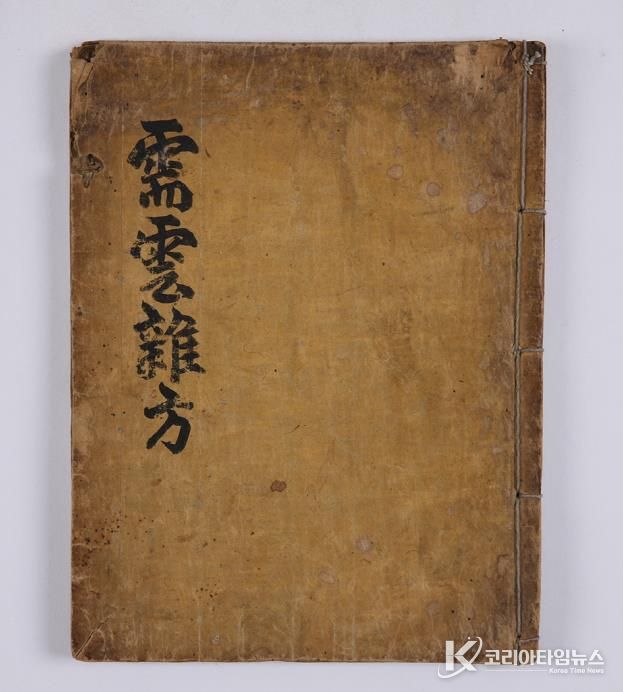 需雲雜方
코리아타임뉴스
Korea Time News